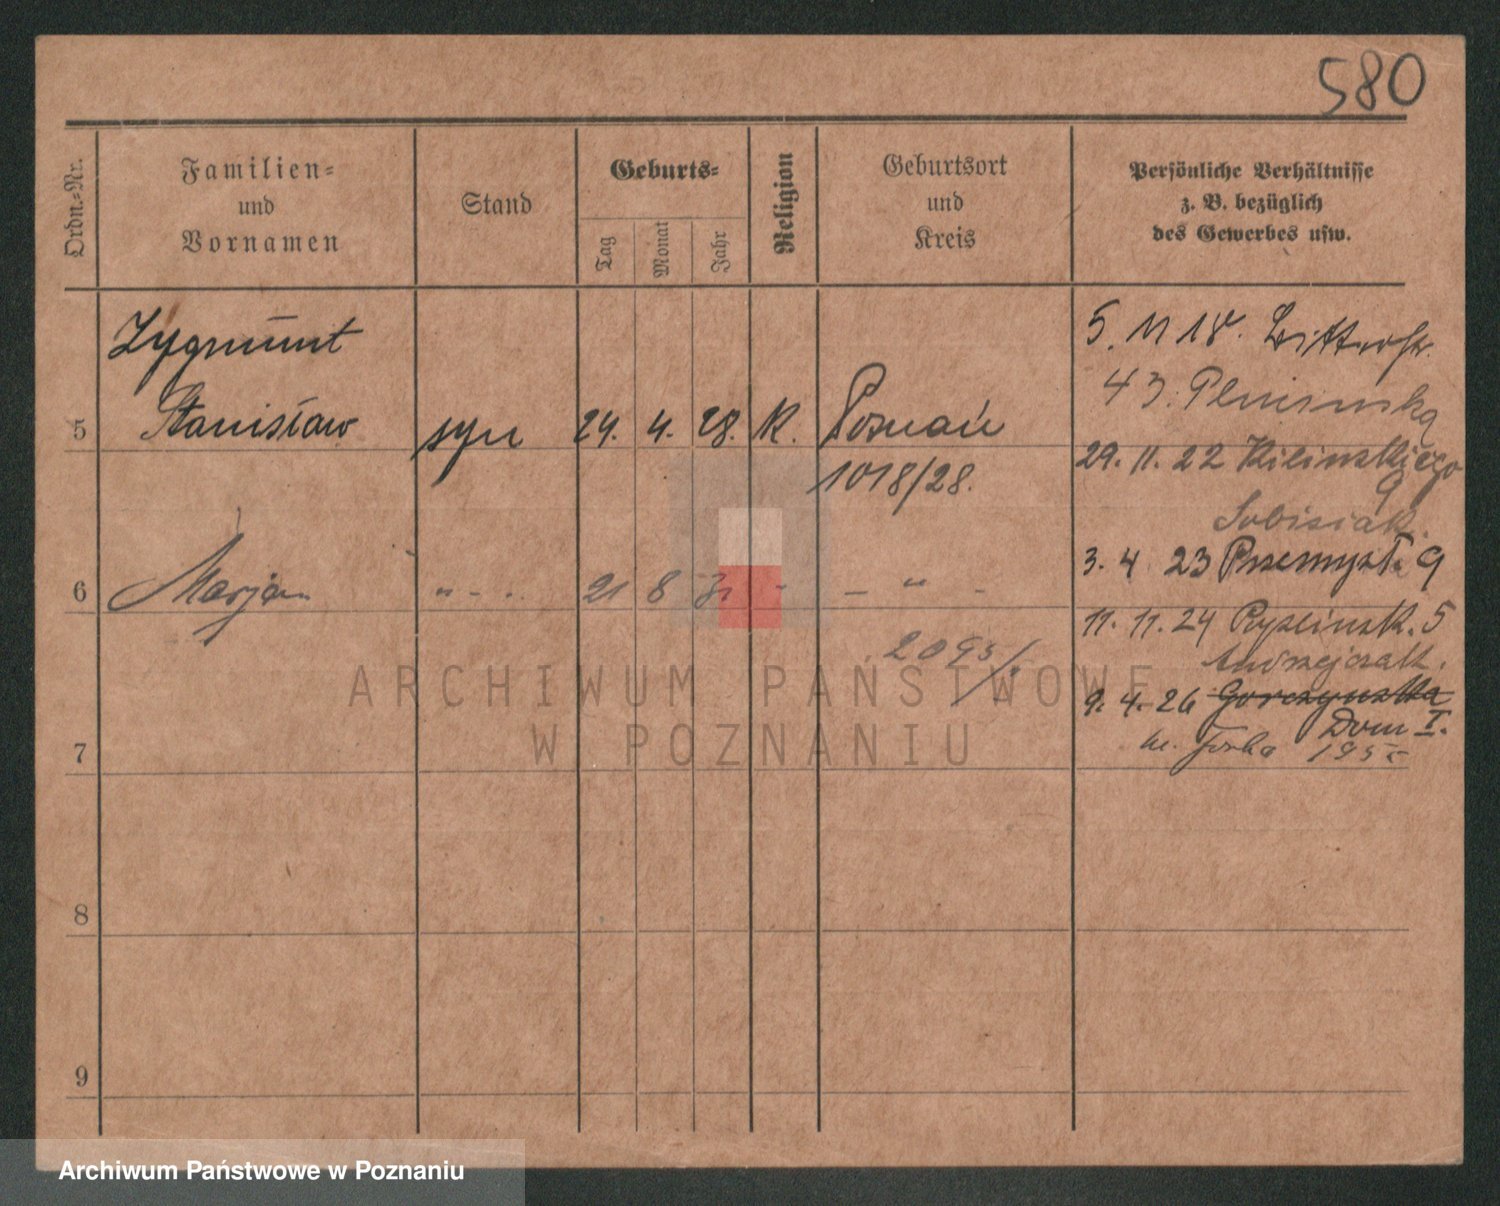 580
Ordn.-Nr.
Familien-
und
Vornamen
Stand
Geburts-
Tag
Monat
Jahr
Religion
Geburtsort
und
Kreis
Persönliche Verhältnisse
z. B. bezüglich
des Gewerbes usw.
Zygmunt
5 Stanisław syn 24. 4. 28. K. Poznań
1018/28.
6 Marjan 21 8
7
8
9
5. 11 18.
43.
29. 11. 22 Kilinskiego
9
Sobisiak.
3. 4. 23 Przemysł. 9
11. 11. 24 5
Andrzejczak.
9. 4. 26 Gorczynska
Dom I.
ARCHIWUM PAŃSTWOWE
W POZNANIU
Archiwum Państwowe w Poznaniu